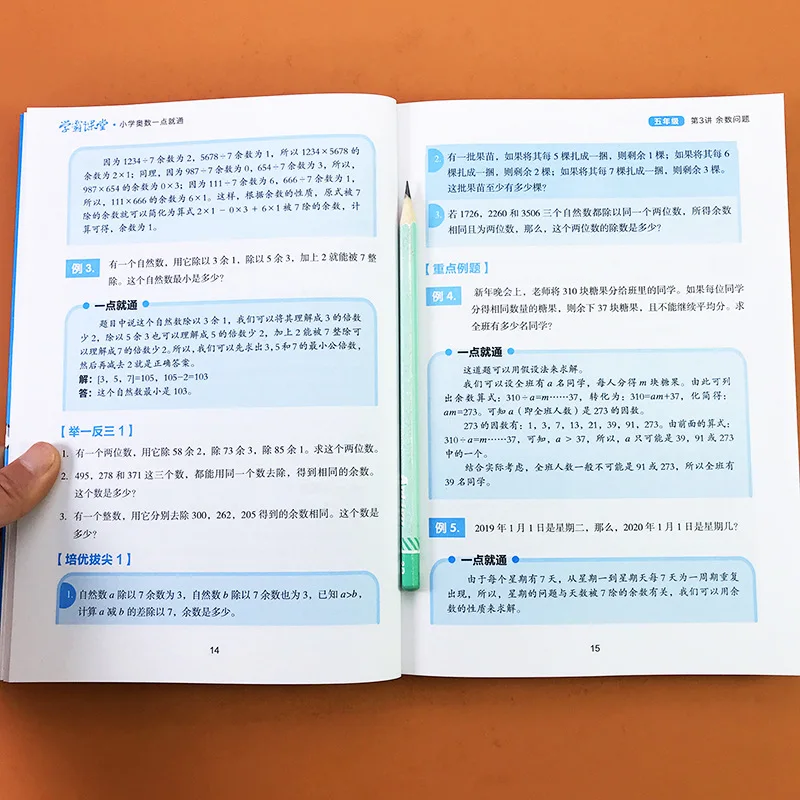 学霸课堂·小学奥数一点就通
因为 1234÷7 余数为 2，5678÷7 余数为 1，所以 1234×5678 的
余数为 2×1；同理，因为 987÷7 余数为 0，654÷7 余数为 3，所以，
987×654 的余数为 0×3；因为 111÷7 余数为 6，666÷7 余数为 1，
所以，111×666 的余数为 6×1。这样，根据余数的性质，原式被 7
除的余数就可以简化为算式 2×1－0×3＋6×1 被 7 除的余数，计
算可得，余数为 1。
例 3. 有一个自然数，用它除以 3 余 1，除以 5 余 3，加上 2 就能被 7 整
除。这个自然数最小是多少？
一点就通
题目中说这个自然数除以 3 余 1，我们可以将其理解成 3 的倍数
少 2，除以 5 余 3 也可以理解成 5 的倍数少 2，加上 2 能被 7 整除可
以理解成 7 的倍数少 2。所以，我们可以先求出 3，5 和 7 的最小公倍数，
然后再减去 2 就是正确答案。
解：[3，5，7]=105，105－2=103
答：这个自然数最小是 103。
【举一反三 1】
1. 有一个两位数，用它除 58 余 2，除 73 余 3，除 85 余 1。求这个两位数。
2. 495，278 和 371 这三个数，都能用同一个数去除，得到相同的余数。
这个数是多少？
3. 有一个整数，用它分别去除 300，262，205 得到的余数相同。这个数是
多少？
【培优拔尖 1】
1. 自然数 a 除以 7 余数为 3，自然数 b 除以 7 余数也为 3，已知 a>b，
计算 a 减 b 的差除以 7，余数是多少。
14
五年级 第3讲 余数问题
2. 有一批果苗，如果将其每 5 棵扎成一捆，则剩余 1 棵；如果将其每 6
棵扎成一捆，则剩余 2 棵；如果将其每 7 棵扎成一捆，则剩余 3 棵。
这批果苗至少有多少棵？
3. 若 1726，2260 和 3506 三个自然数都除以同一个两位数，所得余数
相同且为两位数，那么，这个两位数的除数是多少？
【重点例题】
例 4. 新年晚会上，老师将 310 块糖果分给班里的同学。如果每位同学
分得相同数量的糖果，则余下 37 块糖果，且不能继续平均分。求
全班有多少名同学？
一点就通
这道题可以用假设法来求解。
我们可以设全班有 a 名同学，每人分得 m 块糖果。由此可列
出余数算式：310÷a=m……37，转化为：310=am+37，化简得：
am=273。可知 a（即全班人数）是 273 的因数。
273 的因数有：1，3，7，13，21，39，91，273。由前面的算式：
310÷a=m……37，可知，a > 37，所以，a 只可能是 39，91 或 273
中的一个。
结合实际考虑，全班人数一般不可能是 91 或 273，所以全班有
39 名同学。
例 5. 2019 年 1 月 1 日是星期二，那么，2020 年 1 月 1 日是星期几？
一点就通
由于每个星期有 7 天，从星期一到星期天每 7 天为一周期重复
出现，所以，星期的问题与天数被 7 除的余数有关，我们可以用余
数的性质来求解。
15